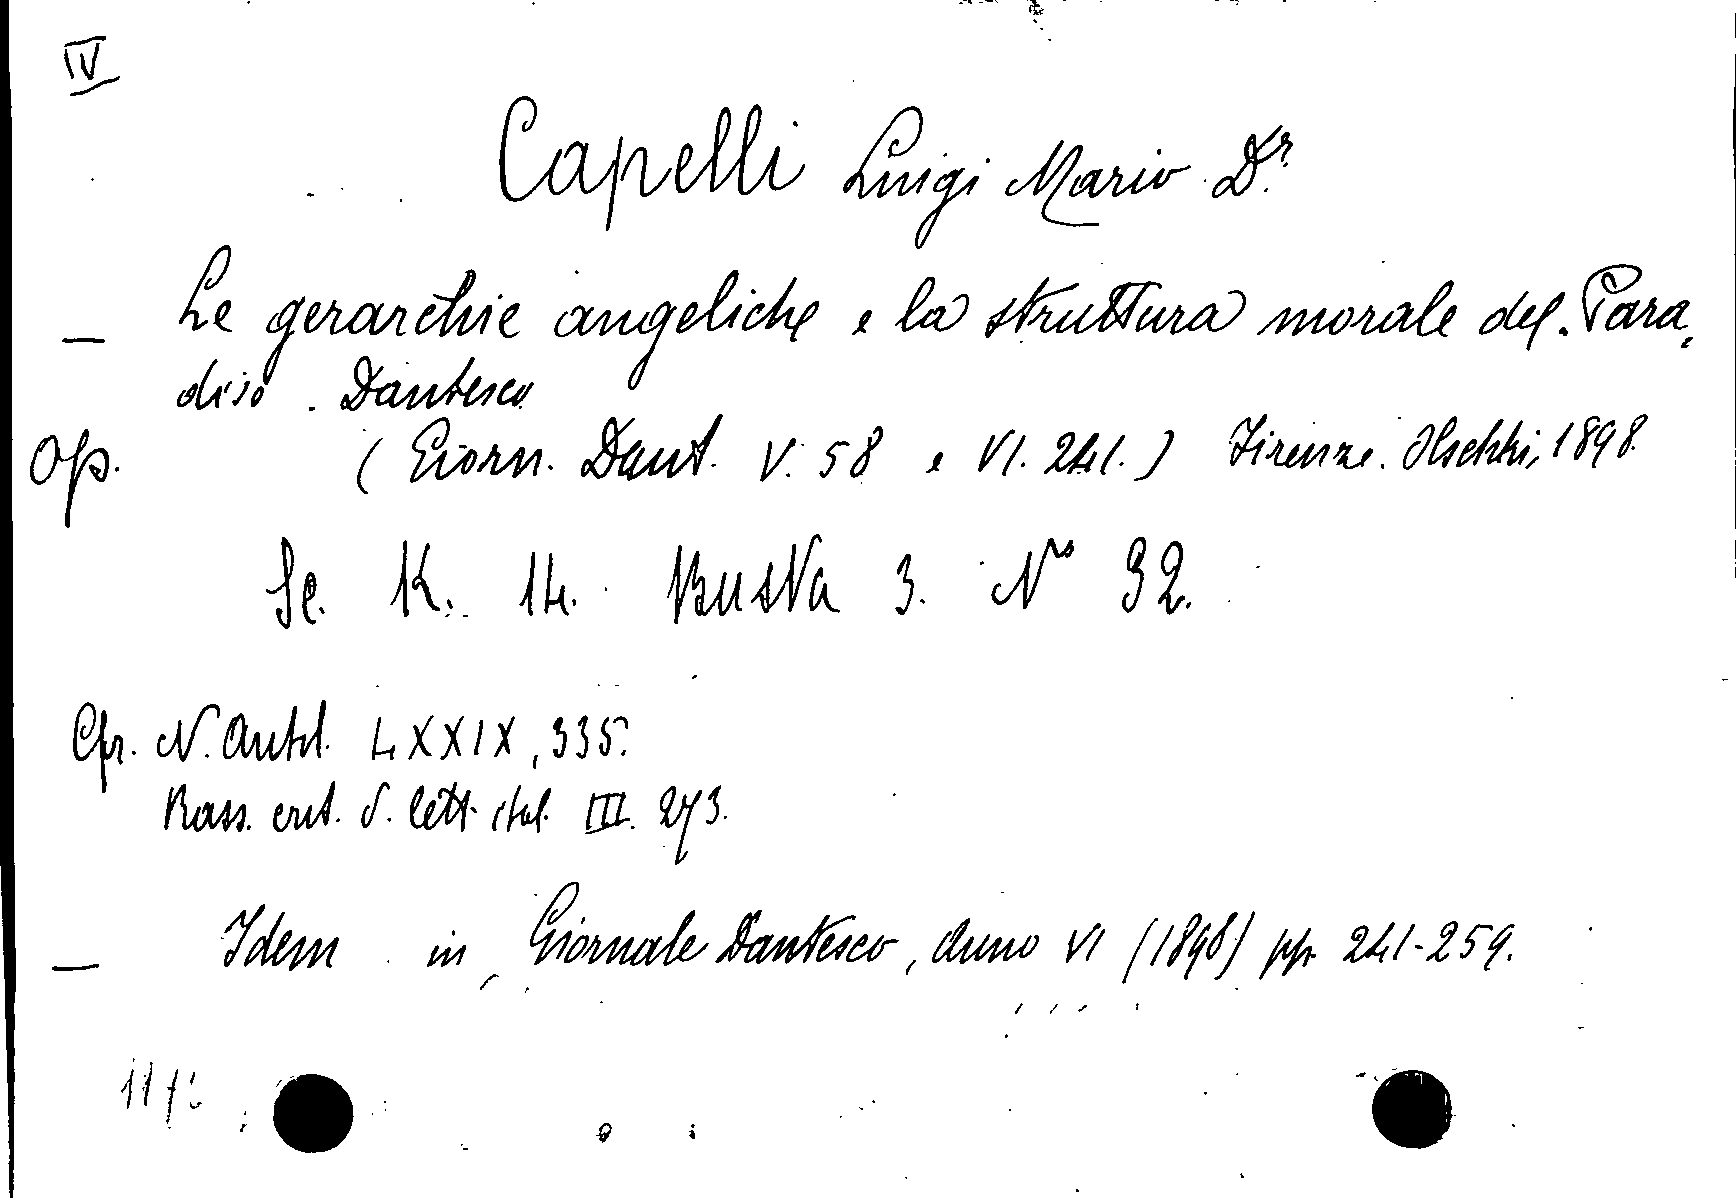 IV
Capelli Luigi Mario Dr.
— Le gerarchie angeliche e la struttura morale del Para-
diso Dantesco
Op. (Giorn. Dant. V. 58 e VI. 241.) Firenze. Olschki, 1898.
Sc. K. 14. Busta 3. No 32.
Cfr. N. Antol. LXXIX, 335.
Rass. crit. d. lett. ital. III. 273.
— Idem in Giornale Dantesco, Anno VI (1898) pp. 241-259.